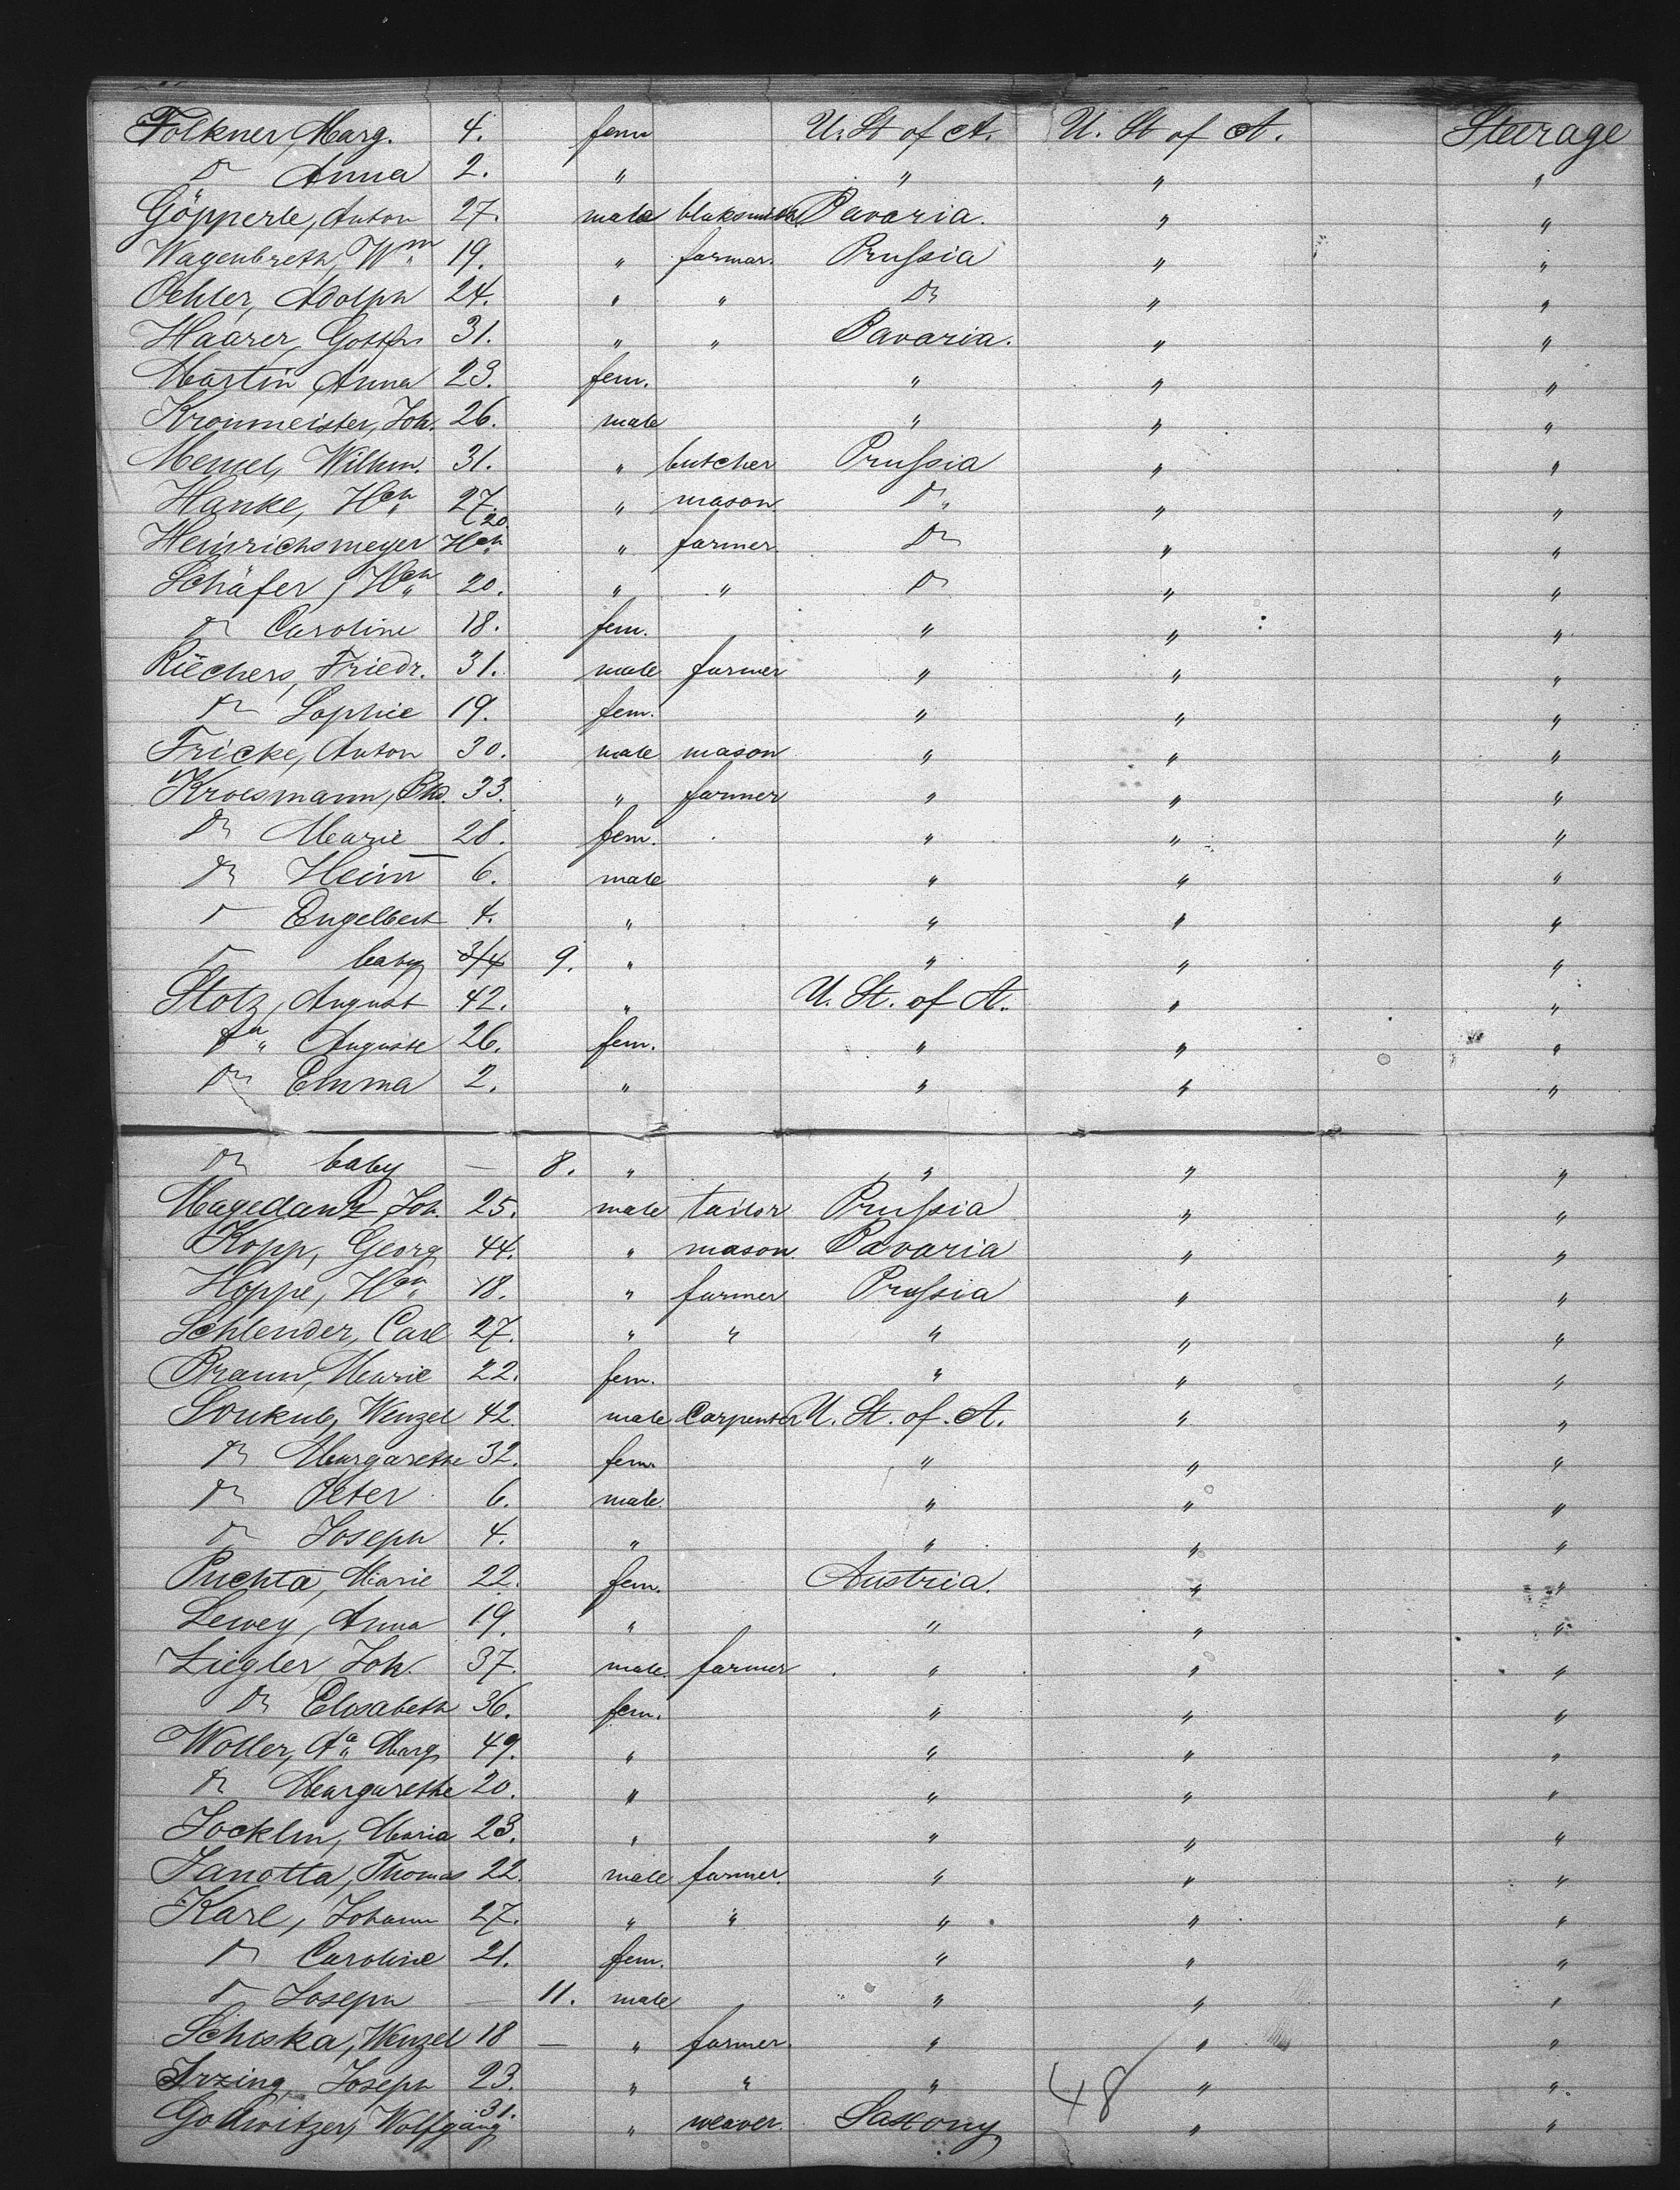 Folkner, Marg. 4. fem U. St of A. U. St of A. Steerage
Do Anna 2. " " " "
Göpperle, Anton 27. male blaksmith Bavaria. " "
Wagenbreth, Wm 19. " farmer. Prussia " "
Oehler, Adolph 24. " " Do " "
Haarer, Gottfr 31. " " Bavaria. " "
Martin Anna 23. fem. " " "
Kronmeister, Joh. 26. male " " "
Menzel, Wilhm. 31. " butcher Prussia " "
Hanke, Hch 27. " mason. Do " "
Heinrichsmeyer Hch 20. " farmer. Do " "
Schäfer, Hch 20. " " Do " "
Do Caroline 18. fem. " " "
Riechers, Friedr. 31. male farmer " " "
Do Sophie 19. fem. " " "
Fricke, Anton 30. male mason " " "
Kroesmann, 33. " farmer " " "
Do Marie 28. fem. " " "
Do Heinr 6. male " " "
Do Engelbert 4. " " " "
Do baby 3/4 9. " " " "
Stotz, August 42. " U. St. of A. " "
Fr Auguste 26. fem. " " "
Do Emma 2. " " " "
Do baby — 8. " " " "
Magedanz, Joh. 25. male tailor Prussia " "
Kopp, Georg 44. " mason Bavaria " "
Hoppe, Hch 18. " farmer Prussia " "
Schlender, Carl 27. " " " " "
Braun, Marie 22. fem. " " "
Soukub, Wenzel 42. male Carpenter U. St. of. A. " "
Do Margarethe 32. fem. " " "
Do Peter 6. male. " " "
Do Joseph 4. " " " "
Puchta, Marie 22. fem. Austria. " "
Lewey, Anna 19. " " " "
Ziegler, Joh. 37. male. farmer " " "
Do Elisabeth 36. fem. " " "
Woller, Marg 49. " " " "
Do Margarethe 20. " " " "
Jocklin, Maria 23. " " " "
Janotta, Thomas 22. male farmer. " " "
Karl, Johann 27. " " " " "
Do Caroline 21. fem. " " "
Do Joseph — 11. male " " "
Schiska, Wenzel 18 — " farmer. " " "
Irzing, Joseph 23. " " " 48 " "
Wolfgang 31. " weaver. Saxony " "